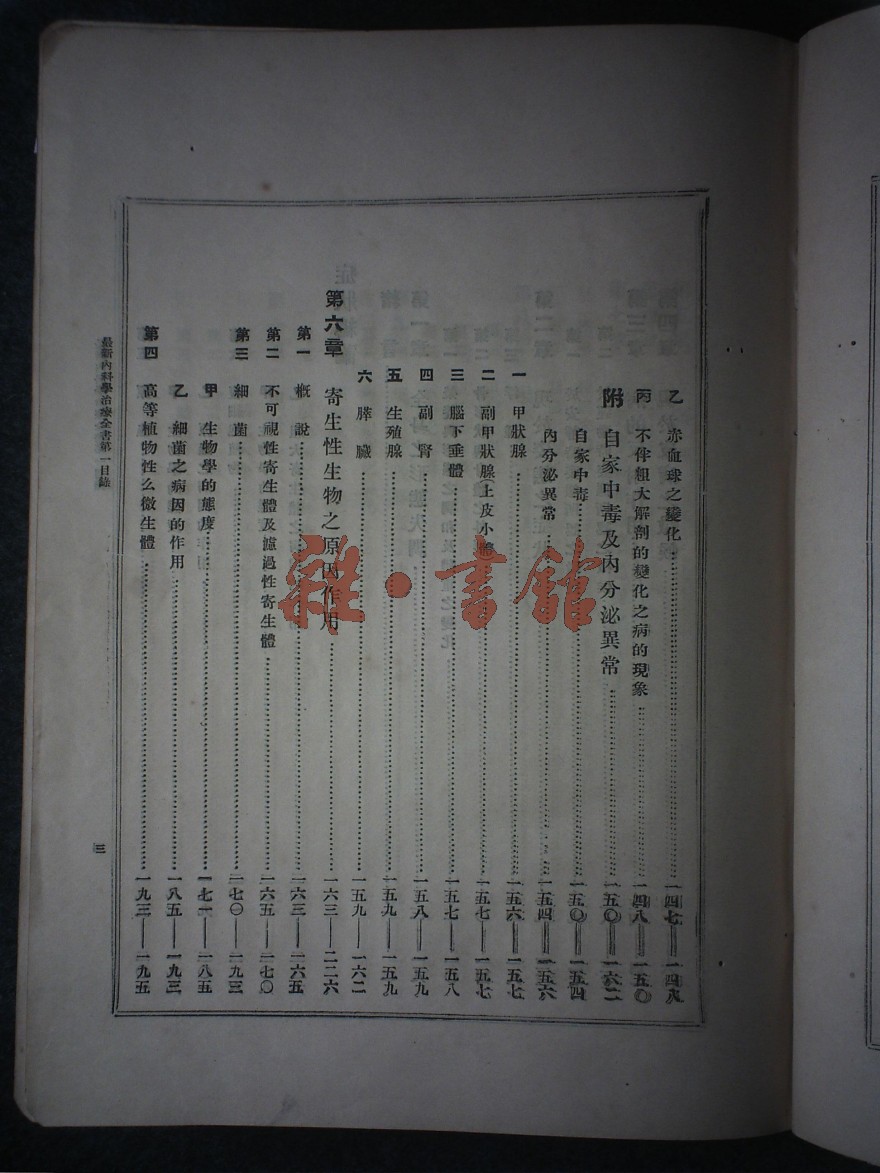 乙 赤血球之變化 一四七——一四八
丙 不伴粗大解剖的變化之病的現象 一四八——一五〇
附 自家中毒及內分泌異常 一五〇——一六二
自家中毒 一五〇——一五四
內分泌異常 一五四——一五六
一 甲狀腺 一五六——一五七
二 副甲狀腺上皮小體 一五七——一五七
三 腦下垂體 一五七——一五八
四 副腎 一五八——一五九
五 生殖腺 一五九——一五九
六 膵臟 一五九——一六二
第六章 寄生性生物之原因作用 一六三——二二六
第一 概說 一六三——一六五
第二 不可視性寄生體及濾過性寄生體 一六五——一七〇
第三 細菌 一七〇——一九三
甲 生物學的態度 一七一——一八五
乙 細菌之病因的作用 一八五——一九三
第四 高等植物性么微生體 一九三——一九五
最新內科學治療全書第一目錄
三
雜·書館